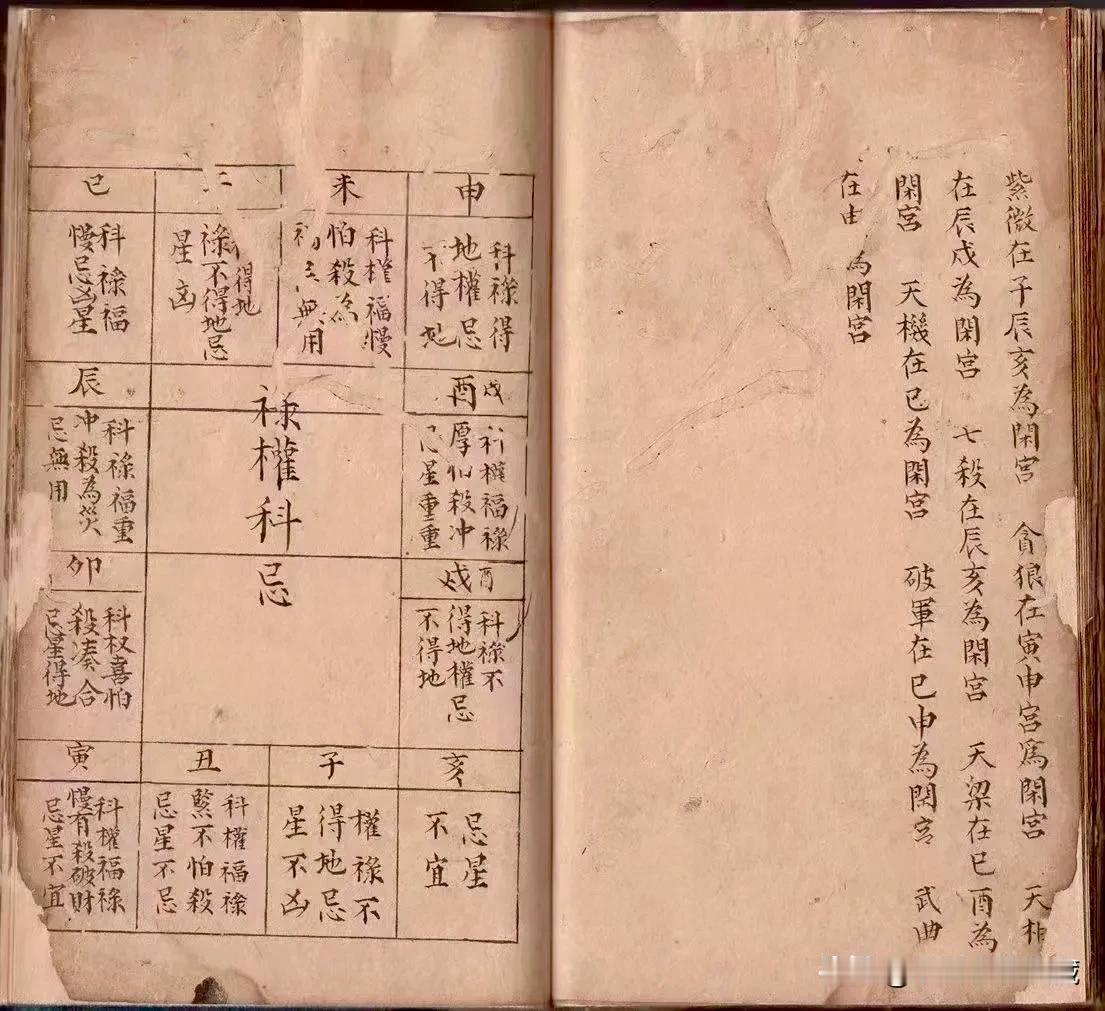 紫微在子辰亥為閑宮　貪狼在寅申宮為閑宮　天相
在辰戌為閑宮　七殺在辰亥為閑宮　天梁在巳酉為
閑宮　天機在巳為閑宮　破軍在巳申為閑宮　武曲
在申為閑宮
申
科祿得
地權忌
不得地
未
科權福慢
怕殺為
無用
得地
祿不得地忌
星凶
巳
科祿福
慢忌凶星
戌
酉
科權福祿
厚怕殺冲
忌星重重
辰
科祿福重
冲殺為災
忌無用
祿權科
忌
酉
戌
科祿不
得地權忌
不得地
卯
科权喜怕
殺凑合
忌星得地
亥
忌星
不宜
子
權祿不
得地忌
星不凶
丑
科權福祿
緊不怕殺
忌星不忌
寅
科權福祿
慢有殺破財
忌星不宜